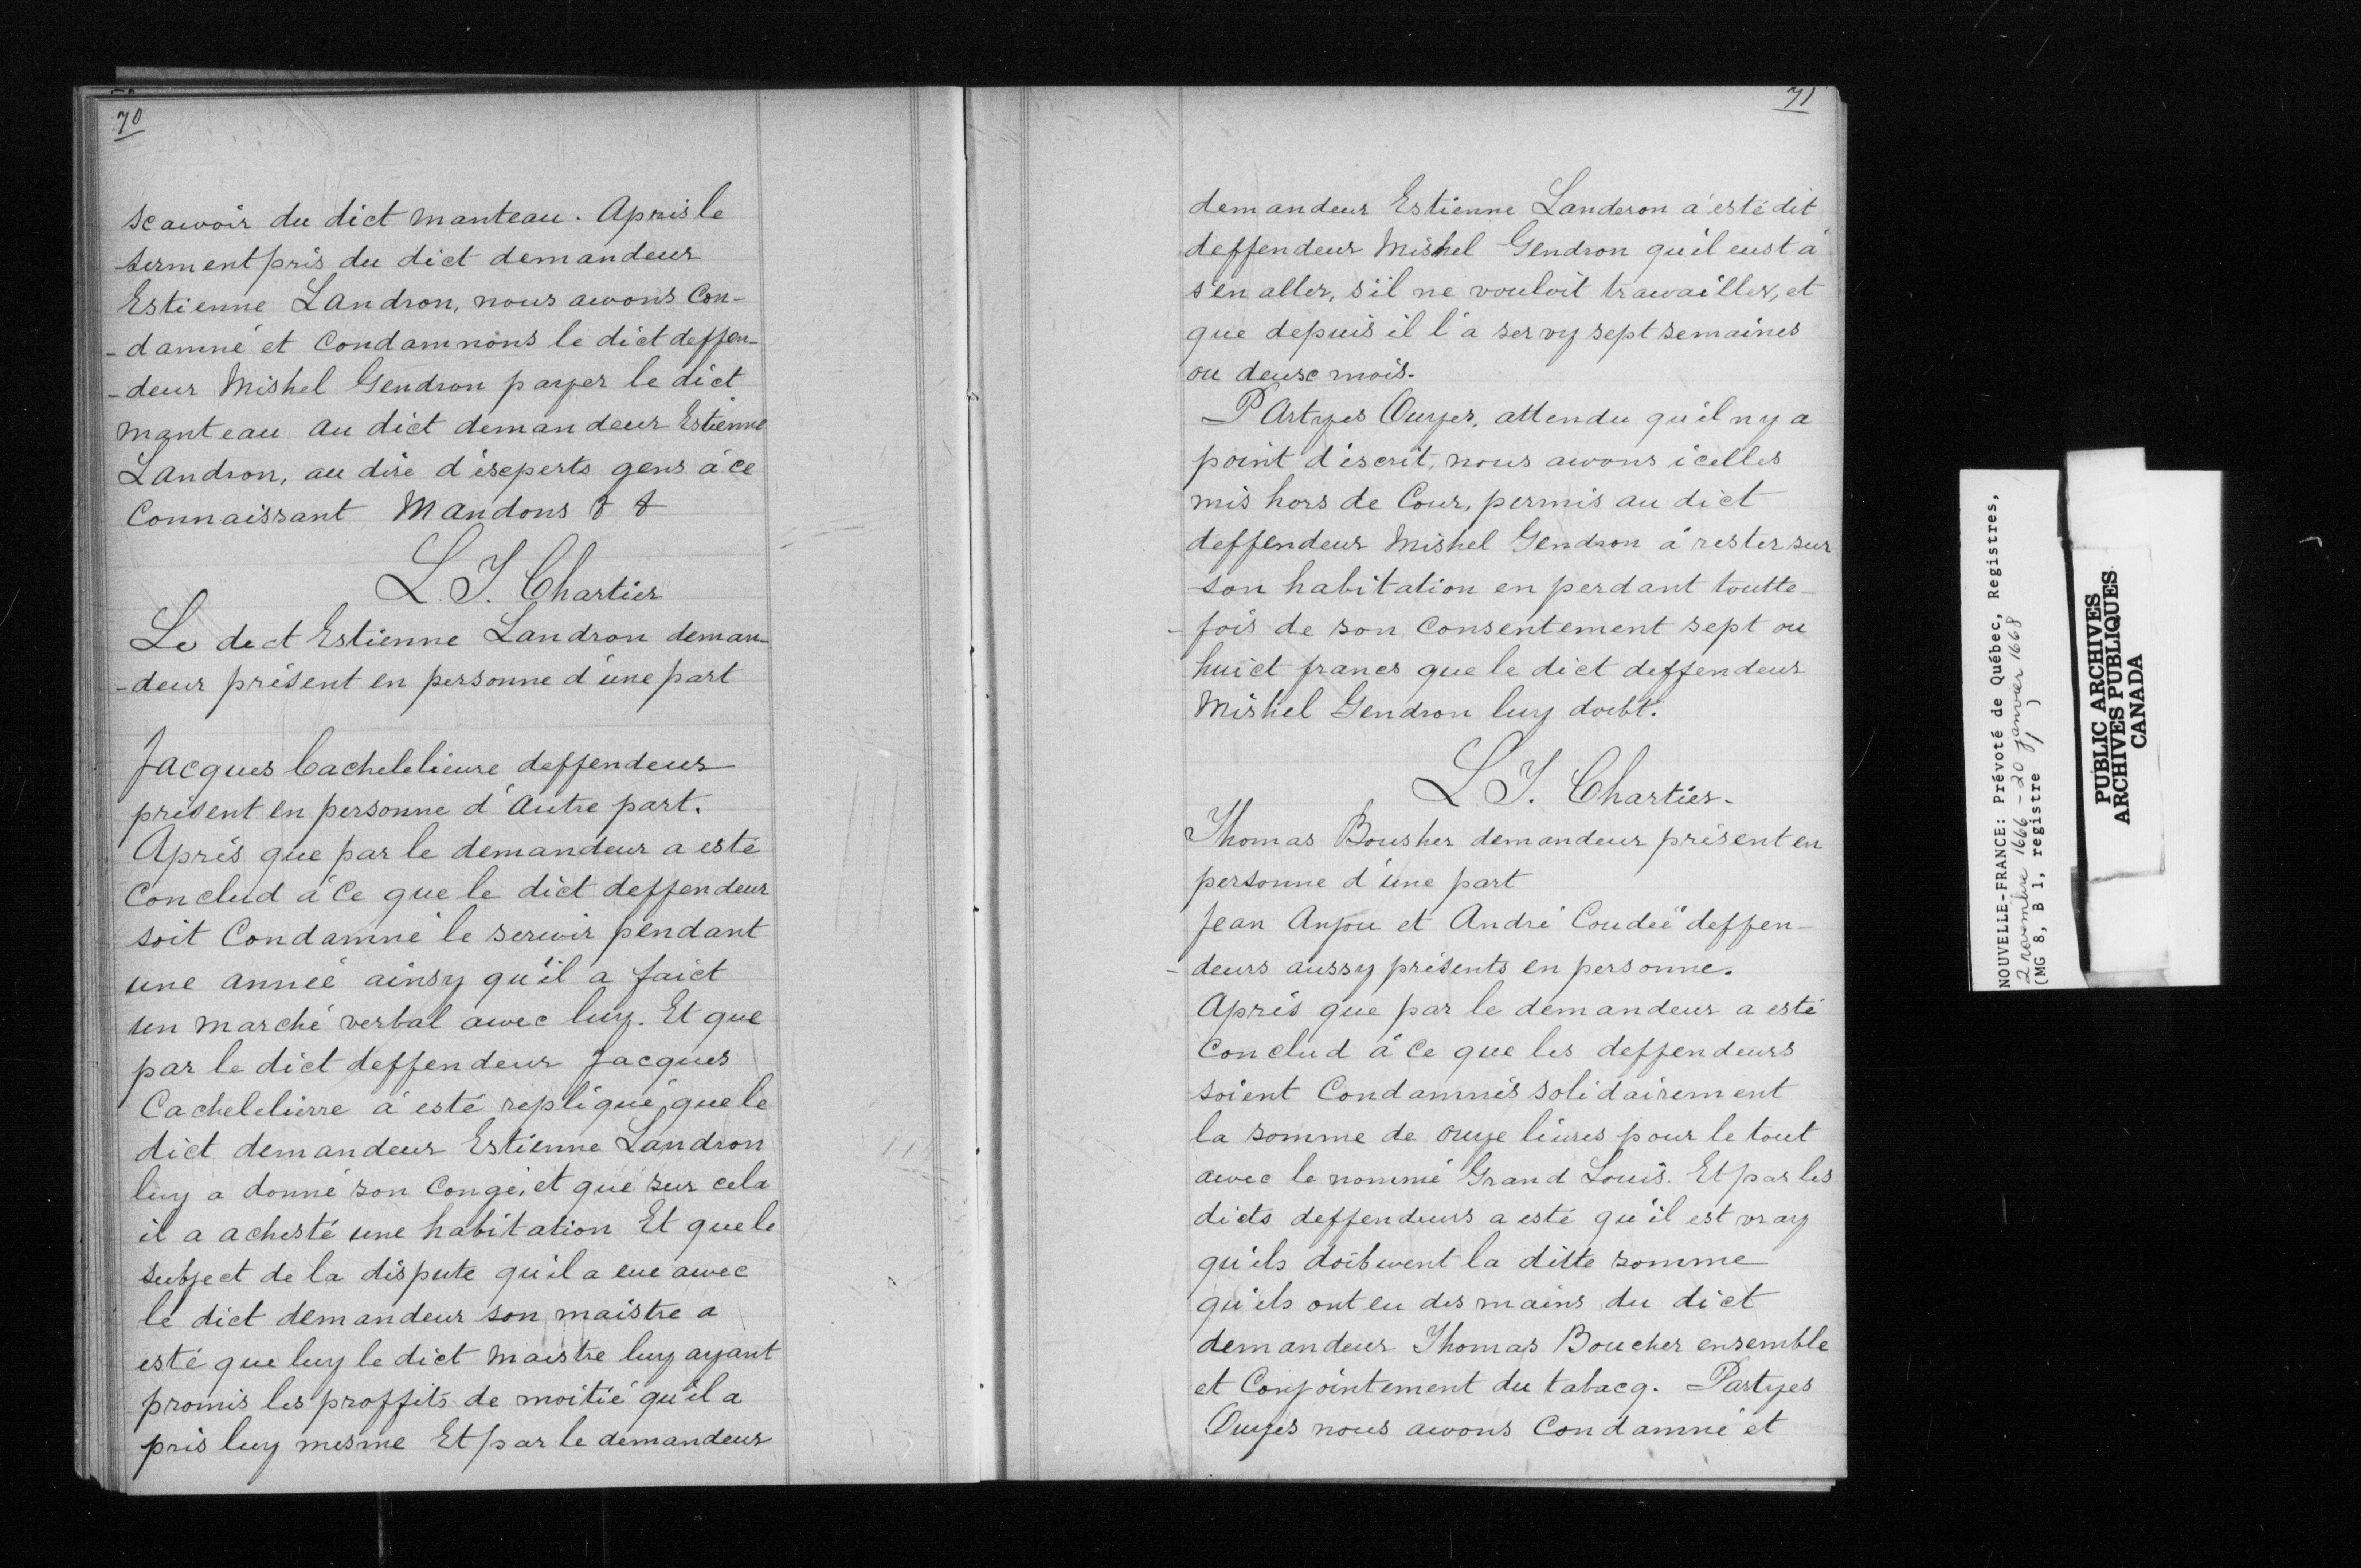 70
scavoir du dict manteau. Apres le
serment pris du dict demandeur
Estienne Landron, nous avons con-
-damné et condamnons le dict deffen-
-deur Mishel Gendron payer le dict
manteau au dict demandeur Estienne
Landron, au dire d'experts gens à ce
connaissant Mandons & &
L. T. Chartier
Le dict Estienne Landron deman-
-deur présent en personne d'une part
Jacques Cachelelieure deffendeur
présent en personne d'autre part.
Aprés que par le demandeur a esté
conclud à ce que le dict deffendeur
soit condamné le servir pendant
une année ainsy qu'il a faict
un marché verbal avec luy. Et que
par le dict deffendeur Jacques
Cachelelievre a esté repliqué, que le
dict demandeur Estienne Landron
luy a donné son congé, et que sur cela
il a achesté une habitation Et que le
subject de la dispute qu'il a eue avec
le dict demandeur son maistre a
esté que luy le dict maistre luy ayant
promis les proffits de moitié qu'il a
pris luy mesme Et par le demandeur
71
demandeur Estienne Landeron a esté dit
deffendeur Mishel Gendron qu'il eust à
s'en aller, s'il ne vouloit travailler, et
que depuis il l'a servy sept semaines
ou deux mois.
PArtyes Ouyes, attendu qu'il n y a
point d'escrit, nous avons icelles
mis hors de Cour, permis au dict
deffendeur Mishel Gendron à rester sur
son habitation en perdant toutte-
-fois de son consentement sept ou
huict francs que le dict deffendeur
Mishel Gendron luy doibt.
L. T. Chartier.
Thomas Bousher demandeur présent en
personne d'une part
Jean Anjou et André Coudée deffen-
-deurs aussy présents en personne.
Aprés que par le demandeur a esté
conclud à ce que les deffendeurs
soient condamnés solidairement
la somme de onze livres pour le tout
avec le nommé Grand Louis. Et par les
dicts deffendeurs a esté qu'il est vray
qu'ils doibvent la ditte somme
qu'ils ont eu des mains du dict
demandeur Thomas Boucher ensemble
et Conjointement du tabacq. Partyes
Ouyes nous avons condamné et
NOUVELLE-FRANCE: Prévoté de Québec, Registres,
2 novembre 1666 - 20 janvier 1668
(MG 8, B 1, registre 1)
PUBLIC ARCHIVES
ARCHIVES PUBLIQUES
CANADA